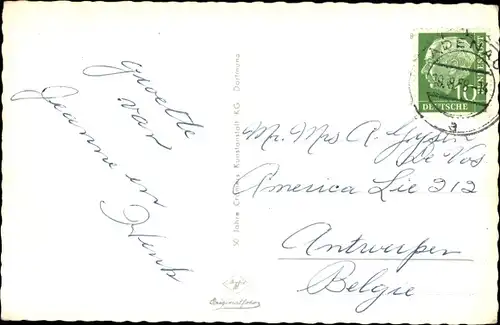 Groette
van
Jeanne en
Henk
50 Jahre Cramers Kunstanstalt KG Dortmund
Agfa
Originalfoto
10
DEUTSCHE
ADENAU
Mr. Mrs A. Gysen
De Vos
America Lie 212
Antwerpen
Belgie